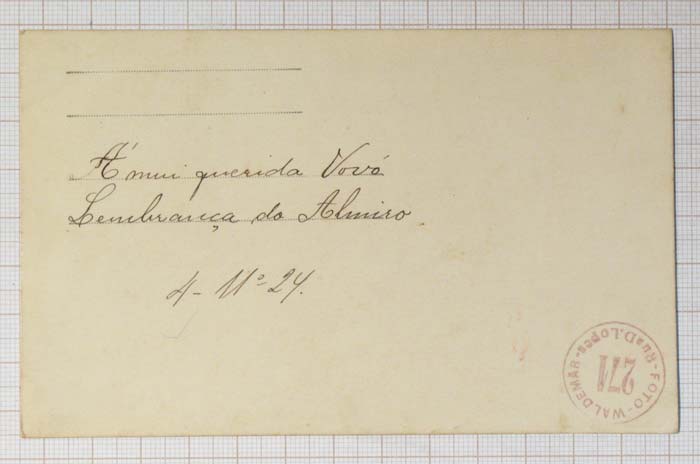 Á mui querida Vovó
Lembrança do Almiro
4-11º-24.
FOTO-WALDEMAR-
Rua D. Lopes-
271